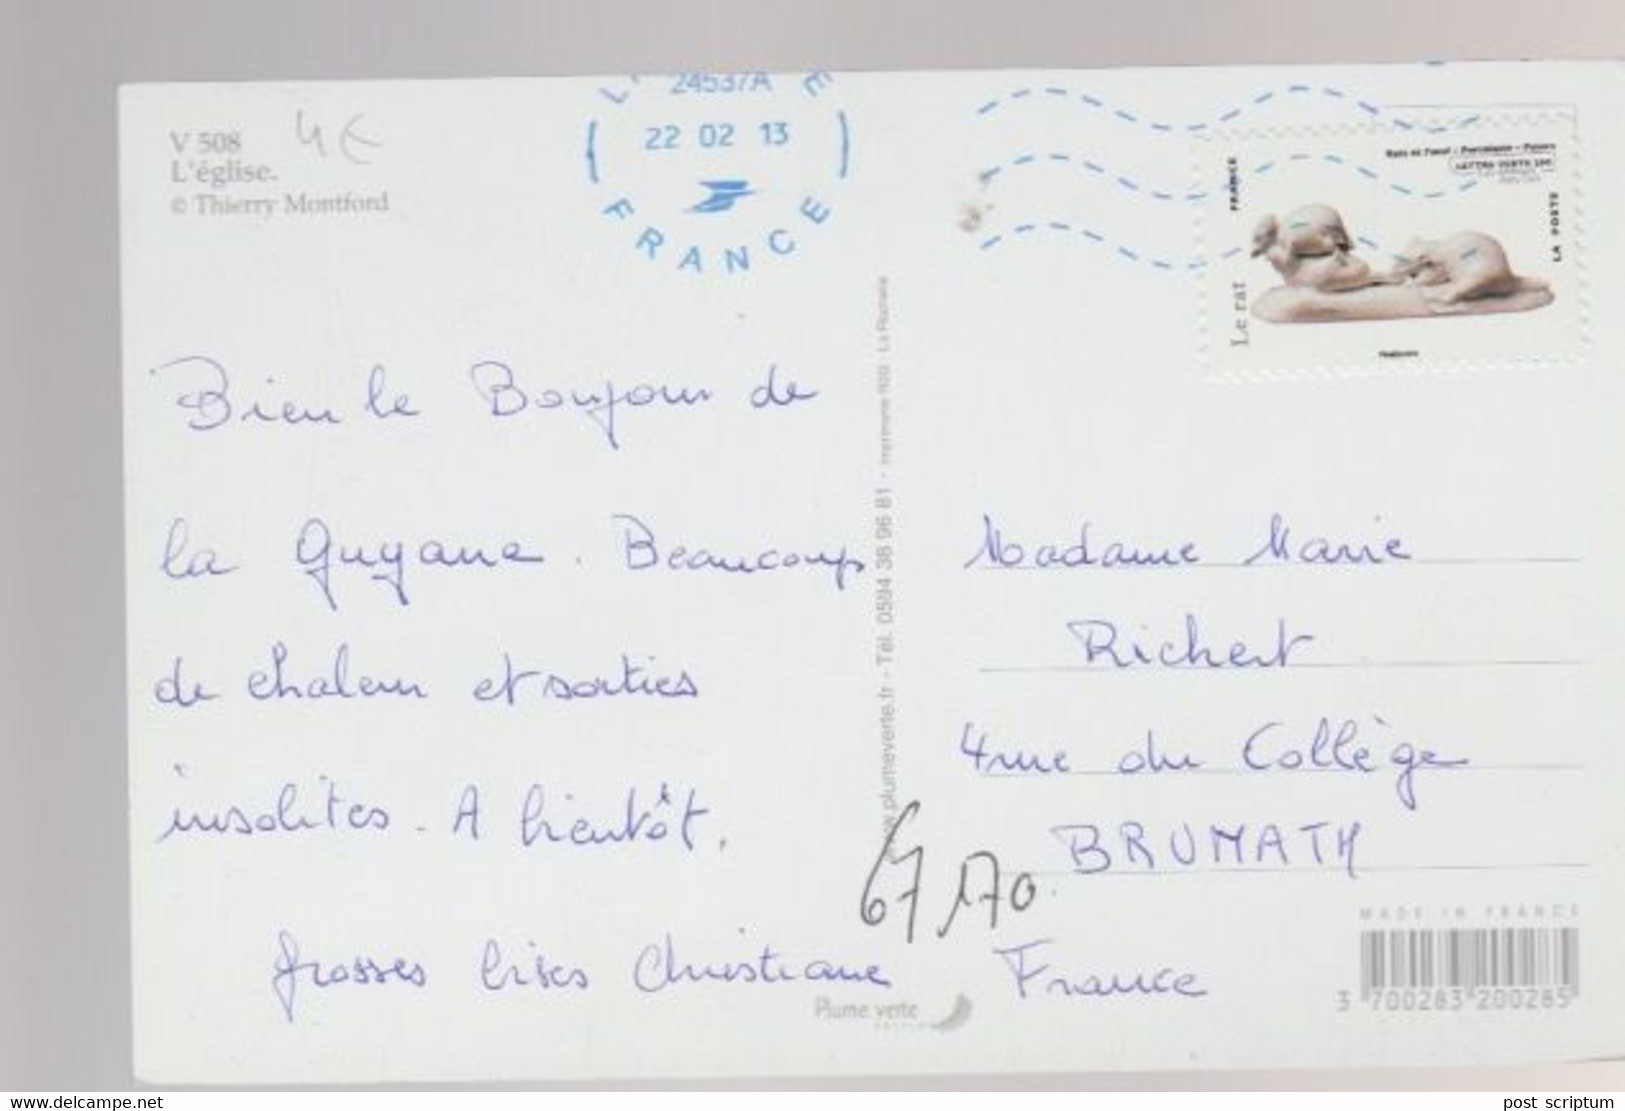 V 508
4€
L'église.
© Thierry Montford
24537A
22 02 13
FRANCE
FRANCE
LETTRE VERTE 20g
LA POSTE
Le rat
Bien le Bonjour de
la Guyane. Beaucoup
de chaleur et sorties
insolites. A bientôt.
Grosses bises Christiane
www.plumeverte.fr - Tél. 0594 38 96 81 - Imprimerie
Plume verte
Madame Marie
Richert
4 rue du Collège
67170
BRUMATH
France
MADE IN FRANCE
3 700283 200285
www.delcampe.net
post scriptum